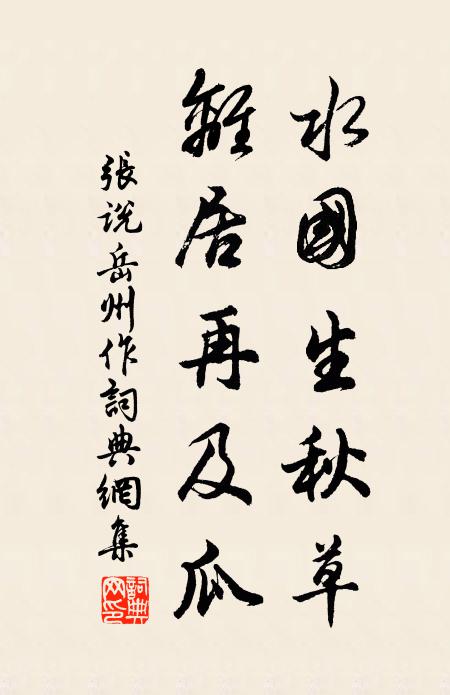 水國生秋草
離居再及瓜
張說岳州作詞典網集
詞典網印